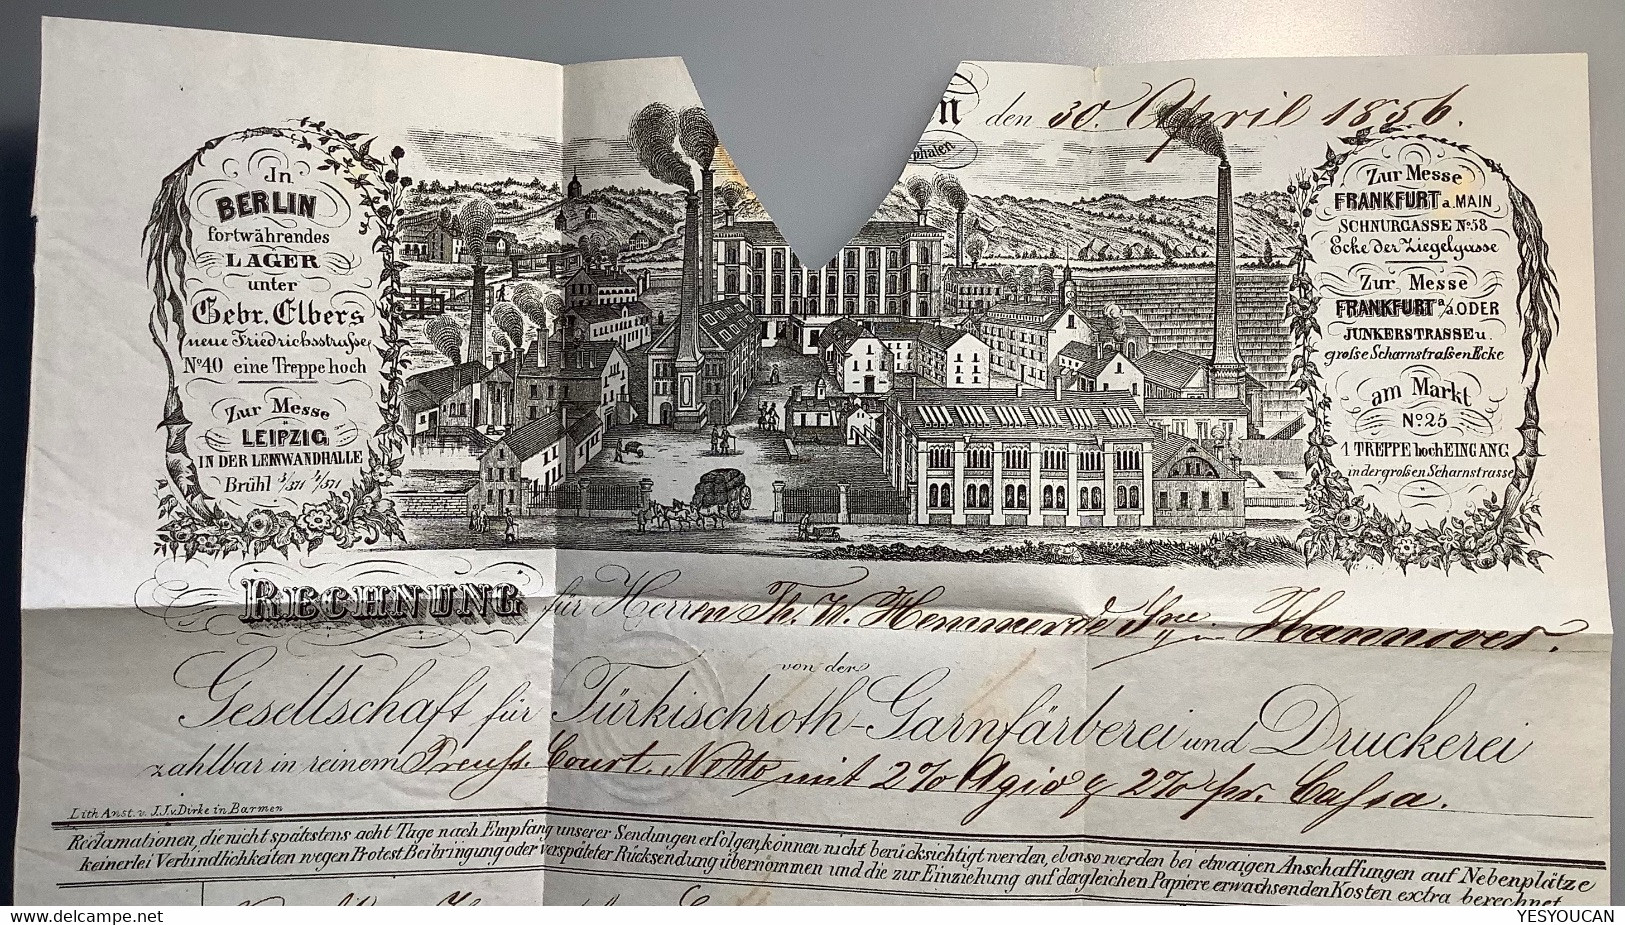 den 30. April 1856.
phalen
In
BERLIN
fortwährendes
LAGER
unter
Gebr. Elbers
neue Friedrichsstraße
No. 40 eine Treppe hoch
Zur Messe
LEIPZIG
IN DER LEINWANDHALLE
Brühl 3/371 4/371
Zur Messe
FRANKFURT a. MAIN
SCHNURGASSE No. 58
Ecke der Ziegelgasse
Zur Messe
FRANKFURT a/d. ODER
JUNKERSTRASSE u.
große Scharnstraßen Ecke
am Markt
No. 25
1 TREPPE hoch EINGANG
in der großen Scharnstrasse
RECHNUNG für Herren Th. W. Hemmerde in Hannover.
von der
Gesellschaft für Türkischroth-Garnfärberei und Druckerei
zahlbar in reinem Preuss. Court. Netto mit 2% Agio & 2% pr. Cassa.
Lith. Anst. v. J. J. v. Dirke in Barmen
Reclamationen, die nicht spätestens acht Tage nach Empfang unserer Sendungen erfolgen, können nicht berücksichtigt werden, ebenso werden bei etwaigen Anschaffungen auf Nebenplätze
keinerlei Verbindlichkeiten wegen Protest Beibringung oder verspäteter Rücksendung übernommen und die zur Einziehung auf dergleichen Papiere erwachsenden Kosten extra berechnet
YESYOUCAN